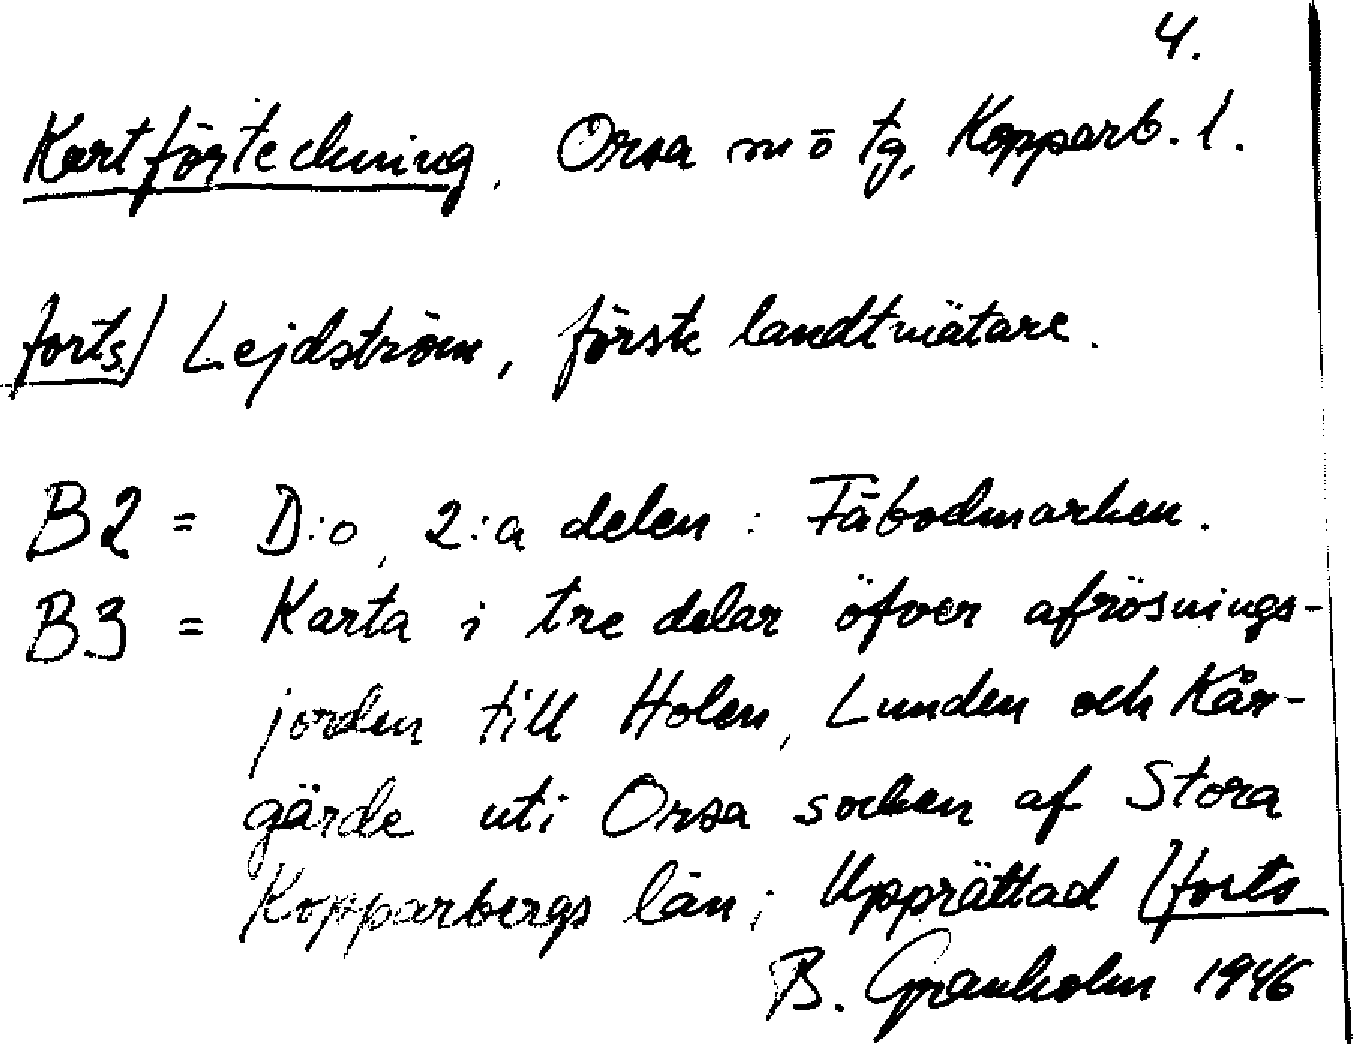 4.
Kartförteckning, Orsa m ö tg, Kopparb. l.
forts.) Lejdström, förste landtmätare.
B2 = D:o, 2:a delen : Fäbodmarken.
B3 = Karta i tre delar öfver afrösnings-
jorden till Holen, Lunden och Kår-
gärde uti Orsa socken af Stora
Kopparbergs län; Upprättad (forts
B. Granholm 1946